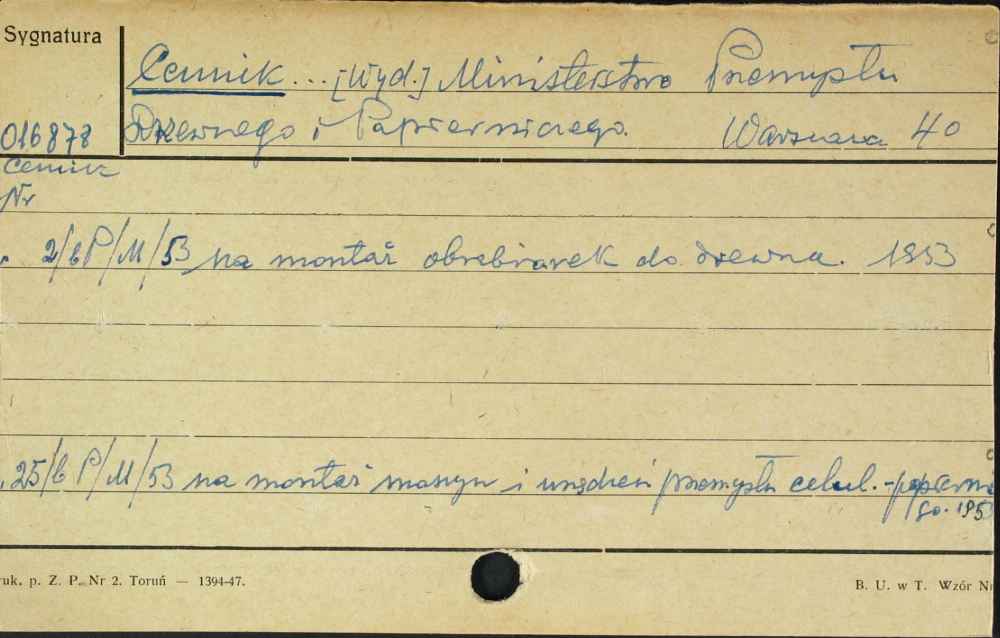 Sygnatura
Cennik... [Wyd.] Ministerstwo Przemysłu
016878 Drzewnego i Papierniczego. Warszawa 40
Cennik
Nr
2/b P/M/53 na montaż obrabiarek do drewna. 1953
25/b P/M/53 na montaż maszyn i urządzeń przemysłu celul.-papierni
go. 195
uk. p. Z. P. Nr 2. Toruń — 1394-47. B. U. w T. Wzór Nr